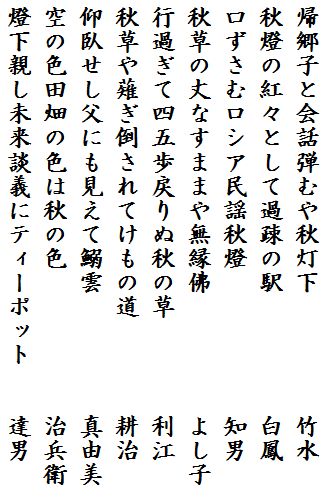 帰郷子と会話弾むや秋灯下 竹水
秋燈の紅々として過疎の駅 白鳳
口ずさむロシア民謡秋燈 知男
秋草の丈なすままや無縁佛 よし子
行過ぎて四五歩戻りぬ秋の草 利江
秋草や薙ぎ倒されてけもの道 耕治
仰臥せし父にも見えて鰯雲 真由美
空の色田畑の色は秋の色 治兵衛
燈下親し未来談義にティーポット 達男